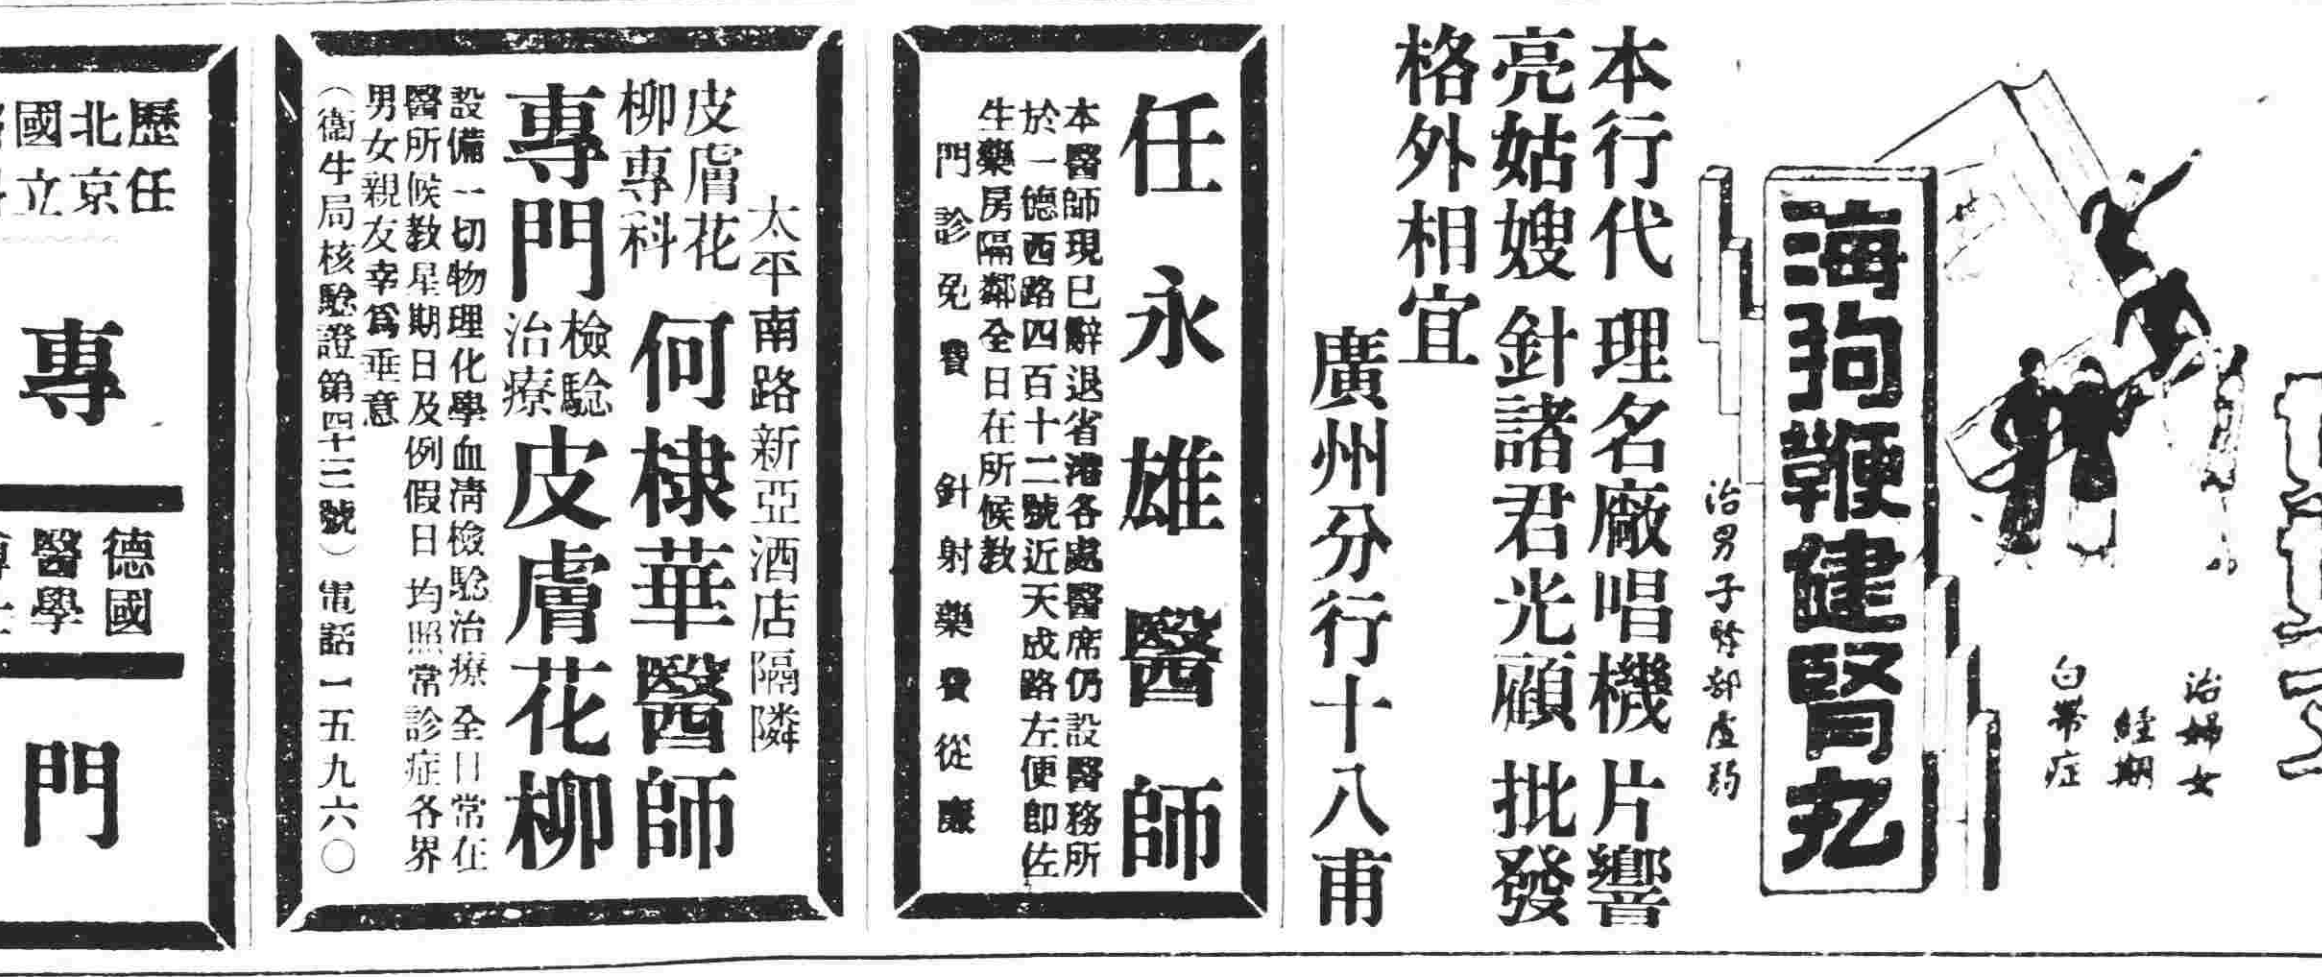 海狗鞭健腎丸
治婦女
經期
白帶症
治男子腎部虛弱
本行代理名廠唱機片響
亮姑嫂針諸君光顧批發
格外相宜
廣州分行十八甫
任永雄醫師
本醫師現已辭退省港各處醫席仍設醫務所
於一德西路四百十二號近天成路左便即佐
生藥房隔鄰全日在所候教
門診免費 針射藥費從廉
太平南路新亞酒店隔隣
皮膚花
柳專科
何棣華醫師
專門
檢驗
治療
皮膚花柳
設備一切物理化學血清檢驗治療全日常在
醫所候教星期日及例假日均照常診症各界
男女親友幸爲垂意
(衞生局核驗證第四十三號)電話一五九六〇
歷任
北京
國立
專
德國
醫學
門